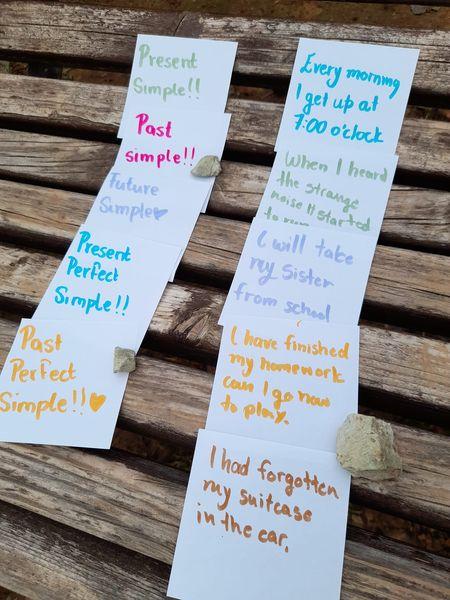 Present
Simple!!
Past
simple!!
Future
Simple♥
Present
Perfect
Simple!!
Past
Perfect
Simple!!♥
Every morning
I get up at
7:00 o'clock
When I heard
the strange
noise I started
to run
I will take
my sister
from school
I have finished
my homework
can I go now
to play.
I had forgotten
my suitcase
in the car.